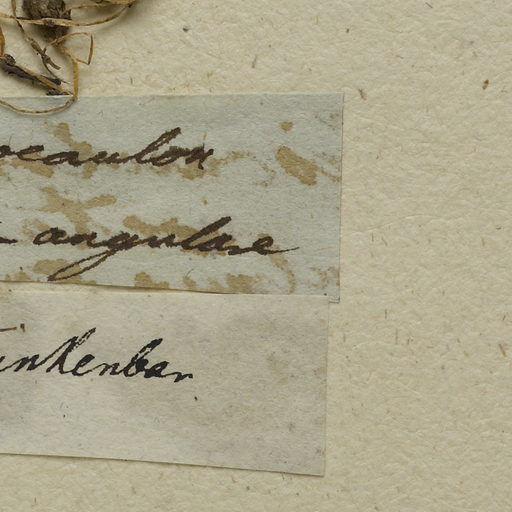 ocaulon
angulare
inkenbar